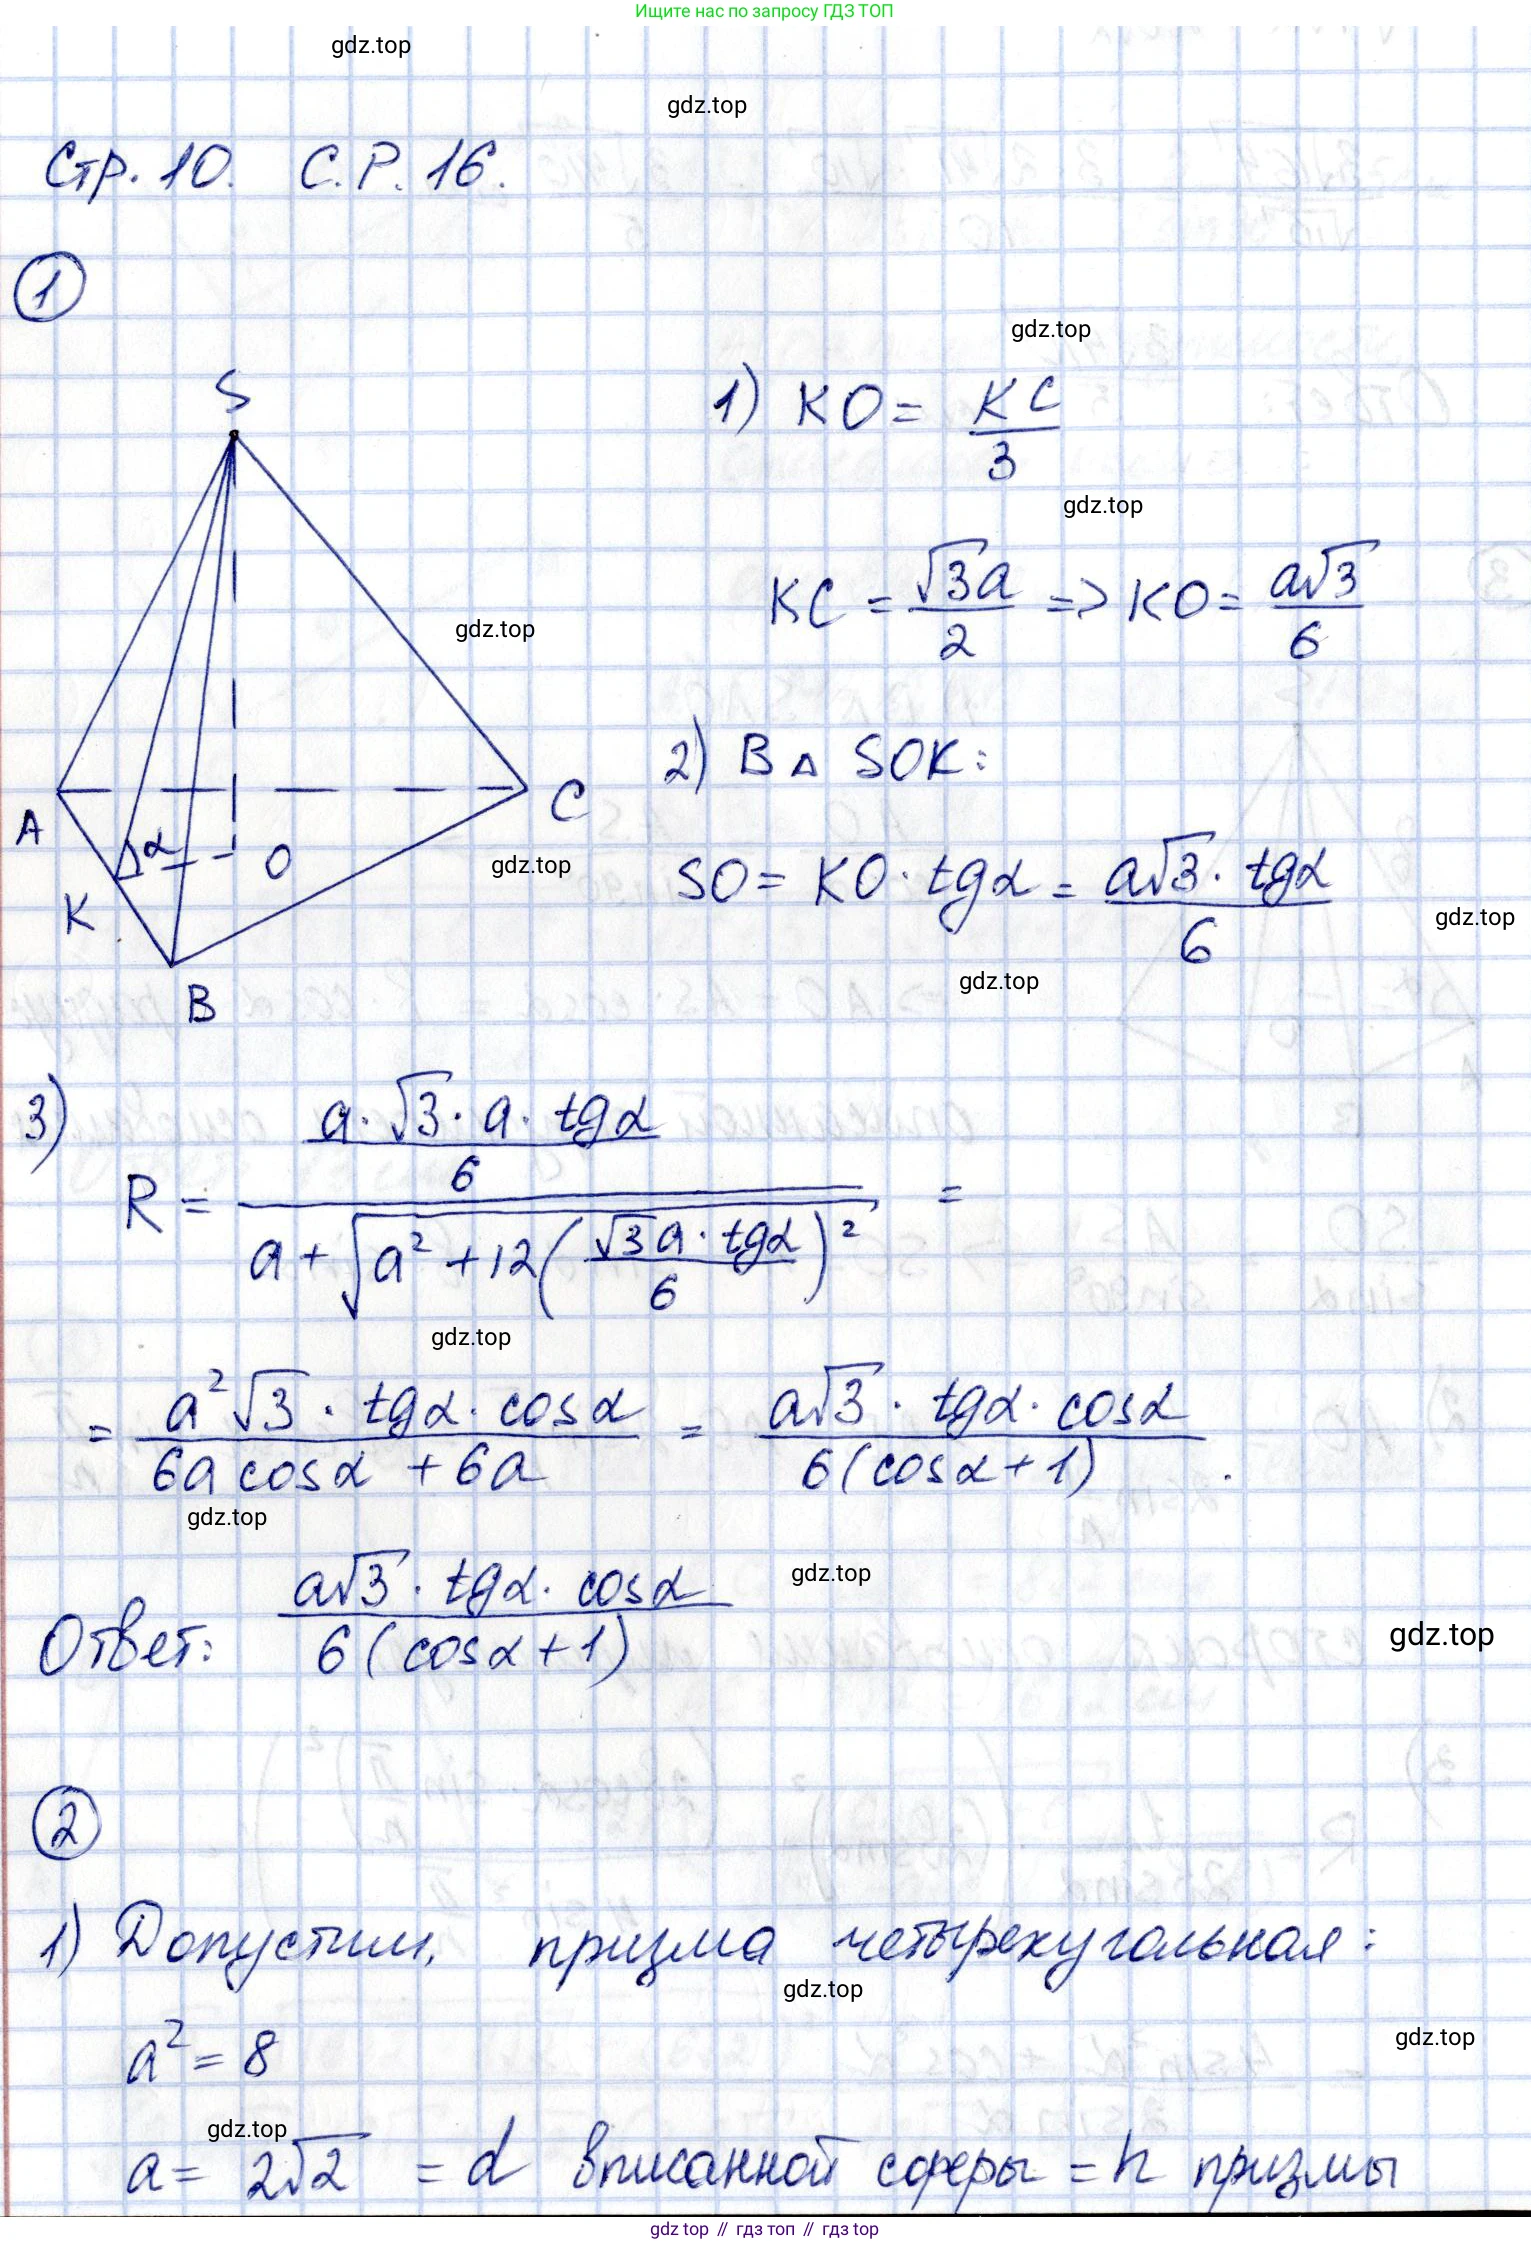 Ищите нас по запросу ГДЗ ТОП
gdz.top
gdz.top
Стр. 10. С.Р. 16.
1
gdz.top
S
1) KO = KC/3
gdz.top
KC = √3a/2 => KO = a√3/6
gdz.top
2) В △ SOK:
A
C
α
O
gdz.top
K
SO = KO · tgα = a√3 · tgα/6
gdz.top
gdz.top
B
3)
R = (a · √3 · a · tgα/6)/(a + √(a² + 12(√3a · tgα/6)²)) =
gdz.top
= a²√3 · tgα · cosα/(6a cosα + 6a) = a√3 · tgα · cosα/6(cosα + 1).
gdz.top
gdz.top
Ответ: a√3 · tgα · cosα/6(cosα + 1)
gdz.top
2
1) Допустим, призма четырехугольная:
gdz.top
a² = 8
gdz.top
gdz.top
a = 2√2 = d вписанной сферы = h призмы
gdz.top // гдз топ // gdz top